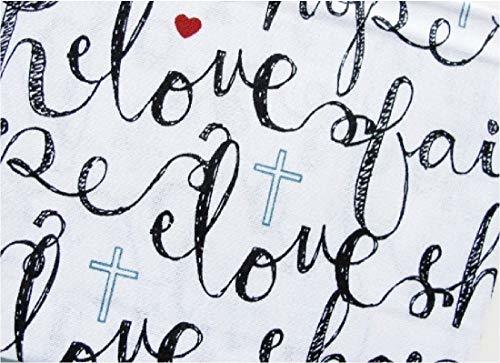 hope
love fai
love sh
love